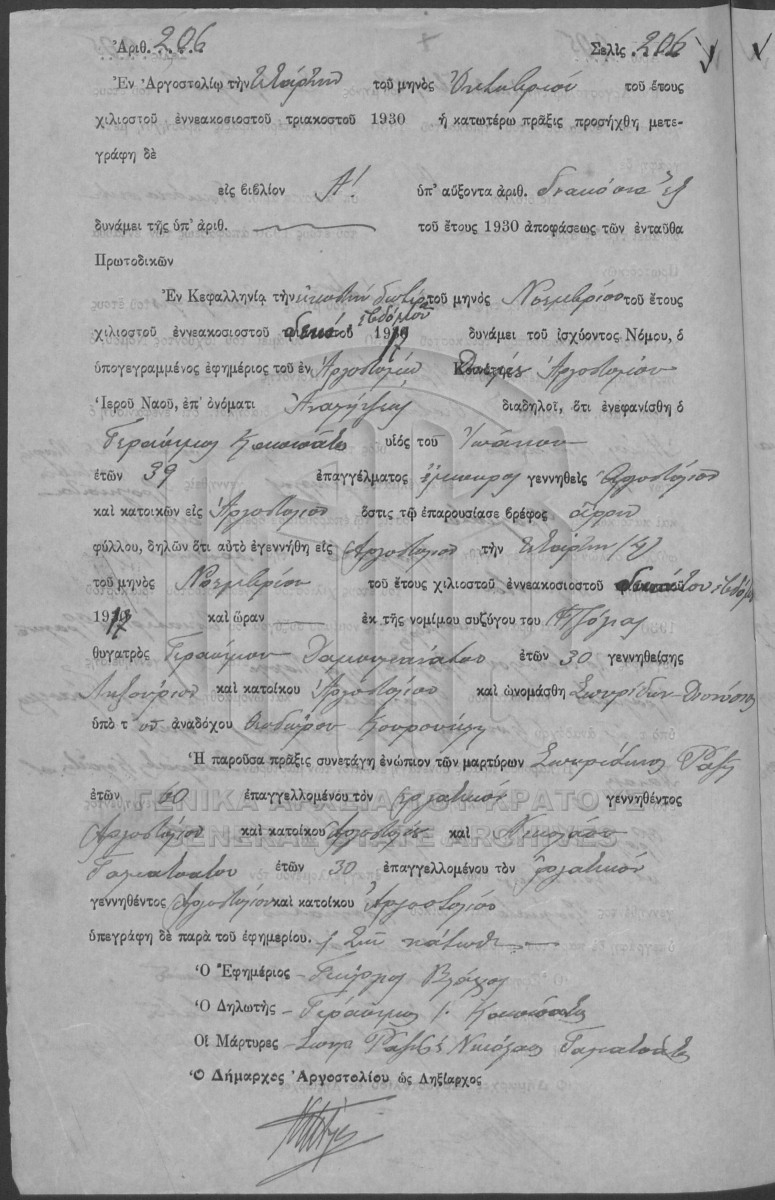 Ἀριθ. 206 Σελὶς 206
Ἐν Ἀργοστολίῳ τὴν τετάρτην τοῦ μηνὸς Ὀκτωβρίου τοῦ ἔτους
χιλιοστοῦ ἐννεακοσιοστοῦ τριακοστοῦ 1930 ἡ κατωτέρω πρᾶξις προσήχθη μετε-
γράφη δὲ
εἰς βιβλίον Α! ὑπ' αὔξοντα ἀριθ. διακόσια ἓξ
δυνάμει τῆς ὑπ' ἀριθ. τοῦ ἔτους 1930 ἀποφάσεως τῶν ἐνταῦθα
Πρωτοδικῶν
Ἐν Κεφαλληνίᾳ τὴν εἰκοστὴν τοῦ μηνὸς Νοεμβρίου τοῦ ἔτους
χιλιοστοῦ ἐννεακοσιοστοῦ δεκάτου ἑβδόμου 1917 δυνάμει τοῦ ἰσχύοντος Νόμου, ὁ
ὑπογεγραμμένος ἐφημέριος τοῦ ἐν Ἀργοστολίῳ Ἀργοστολίου
Ἱεροῦ Ναοῦ, ἐπ' ὀνόματι Ἀναλήψεως διαδηλοῖ, ὅτι ἐνεφανίσθη ὁ
Γεράσιμος υἱὸς τοῦ Ἰωάννου
ἐτῶν 39 ἐπαγγέλματος ἔμπορος γεννηθεὶς Ἀργοστόλιον
καὶ κατοικῶν εἰς Ἀργοστόλιον ὅστις τῷ ἐπαρουσίασε βρέφος ἄρρεν
φύλλου, δηλῶν ὅτι αὐτὸ ἐγεννήθη εἰς Ἀργοστόλιον τὴν τετάρτην (4)
τοῦ μηνὸς Νοεμβρίου τοῦ ἔτους χιλιοστοῦ ἐννεακοσιοστοῦ δεκάτου ἑβδόμου
1917 καὶ ὥραν ἐκ τῆς νομίμου συζύγου του
θυγατρὸς Γερασίμου ἐτῶν 30 γεννηθείσης
Ληξούριον καὶ κατοίκου Ἀργοστόλιον καὶ ὠνομάσθη Σπυρίδων-Διονύσιος
ὑπὸ τοῦ ἀναδόχου Θεοδώρου
Ἡ παροῦσα πρᾶξις συνετάγη ἐνώπιον τῶν μαρτύρων Σπυρίδωνος
ἐτῶν 40 ἐπαγγελλομένου τὸν ἐργατικὸν γεννηθέντος
Ἀργοστόλιον καὶ κατοίκου Ἀργοστόλιον καὶ Νικολάου
ἐτῶν 30 ἐπαγγελλομένου τὸν ἐργατικὸν
γεννηθέντος Ἀργοστόλιον καὶ κατοίκου Ἀργοστόλιον
ὑπεγράφη δὲ παρὰ τοῦ ἐφημερίου. κάτωθι
Ὁ Ἐφημέριος - Γεώργιος Βλάχος
Ὁ Δηλωτὴς - Γεράσιμος Ι.
Οἱ Μάρτυρες - Νικόλαος
Ὁ Δήμαρχος Ἀργοστολίου ὡς Ληξίαρχος
ΓΕΝΙΚΑ ΑΡΧΕΙΑ ΤΟΥ ΚΡΑΤΟΥΣ
GENERAL STATE ARCHIVES